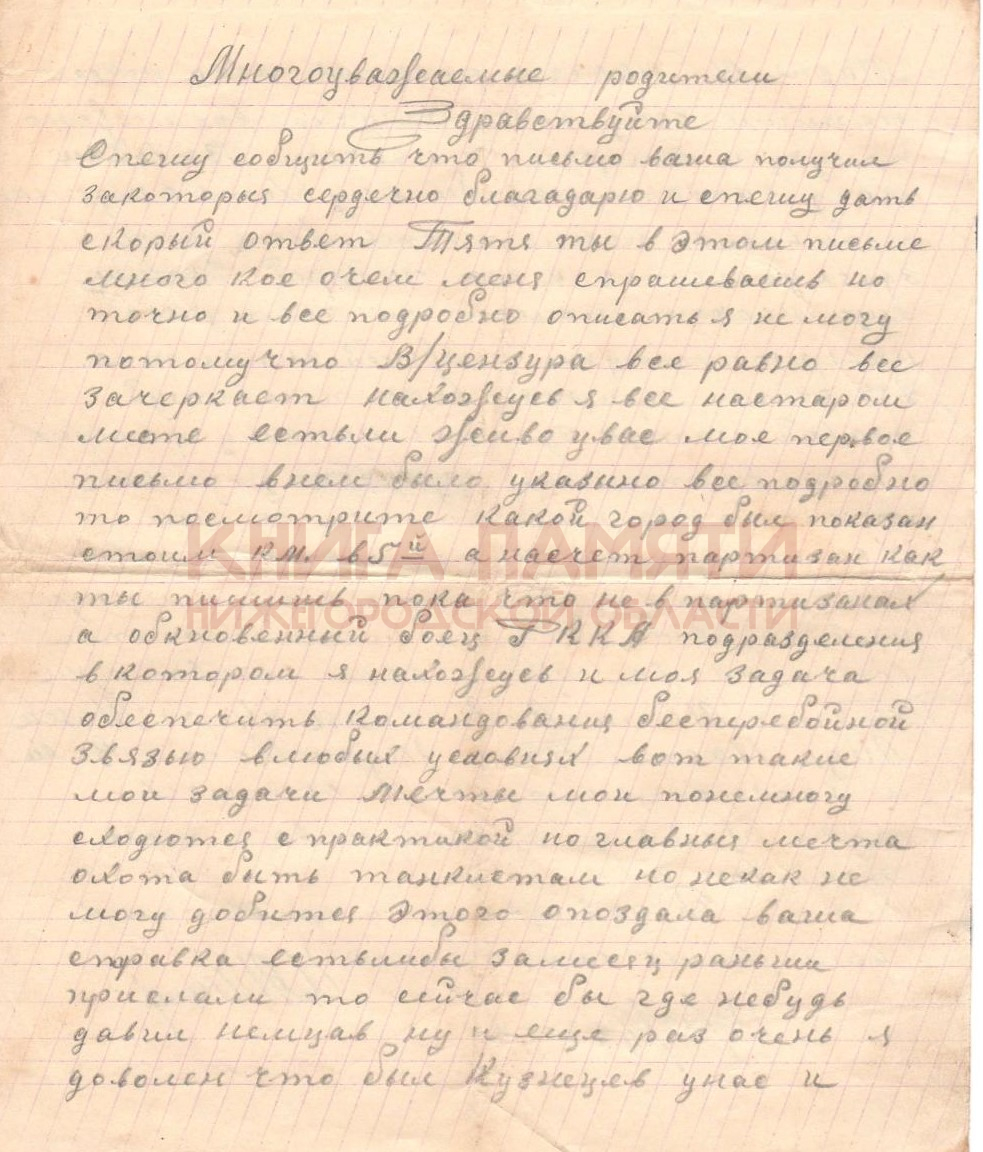 Многоуважаемые родители
Здравствуйте
Спешу собщить что письмо ваша получил
закоторыя сердечно благадарю и спешу дать
скорый ответ Тятя ты в этом письме
много кое очем меня спрашиваешь но
точно и все подробно описать я не могу
потомучто В/цензура все равно все
зачеркает нахожусь я все настаром
месте естьли живо увас мое первое
письмо внем было указано все подробно
то посмотрите какой город был показан
стоим км. в 5й а насчет партизан как
ты пишишь пока что не в партизанах
а обкновенный боец РККА подразделения
в котором я нахожусь и моя задача
обеспечить командования бесперебойной
звязью влюбых условиях вот такие
мои задачи Мечты мои понемногу
сходются с практикой но главныя мечта
охота быть танкистам но некак не
могу добится этого опоздала ваша
справка естьлибы замесяц раньши
прислали то сийчас бы где небудь
давил немцав ну и еще раз очень я
доволен что был Кузнецев унас и
КНИГА ПАМЯТИ
НИЖЕГОРОДСКОЙ ОБЛАСТИ